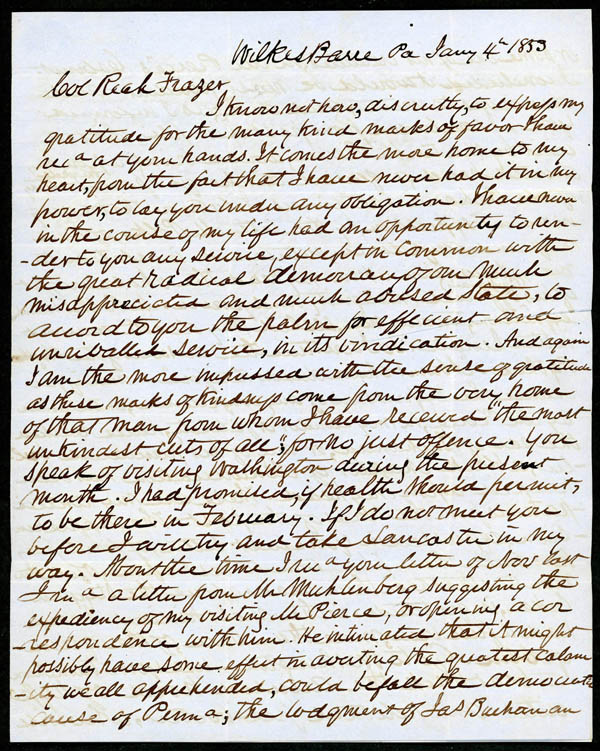 Wilkes Barre Pa Jany 4th 1853
Col Reah Frazer
I know not how, discreetly, to express my
gratitude for the many kind marks of favor I have
recd at your hands. It comes the more home to my
heart, from the fact that I have never had it in my
power, to lay you under any obligation. I have never
in the course of my life had an opportunity to ren-
-der to you any service, except in common with
the great radical democracy of our much
misappreciated and much abused State, to
accord to you the palm for efficient and
unrivalled service, in its vindication. And again
I am the more impressed with the sense of gratitude
as these marks of kindness come from the very home
of that man from whom I have received "the most
unkindest cuts of all", for no just offence. You
speak of visiting Washington during the present
month. I had promised, if health should permit,
to be there in February. If I do not meet you
before I will try and take Lancaster in my
way. About the time I recd your letter of Nov last
I recd a letter from Mr Muhlenberg suggesting the
expediency of my visiting Mr Pierce, or opening a cor
-respondence with him. He intimated that it might
possibly have some effect in averting the greatest calam
-ity we all apprehended, could befall the democratic
cause of Penna; the lodgment of Jas Buchanan